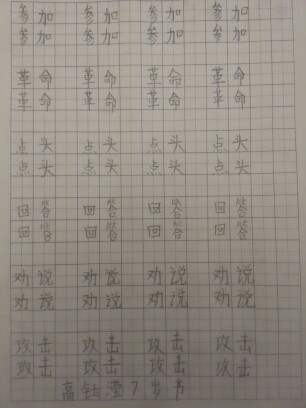 参加 参加 参加 参加
参加 参加 参加 参加
革命 革命 革命 革命
革命 革命 革命 革命
点头 点头 点头 点头
点头 点头 点头 点头
回答 回答 回答 回答
回答 回答 回答 回答
劝说 劝说 劝说 劝说
劝说 劝说 劝说 劝说
攻击 攻击 攻击 攻击
攻击 攻击 攻击 攻击
高 7岁书